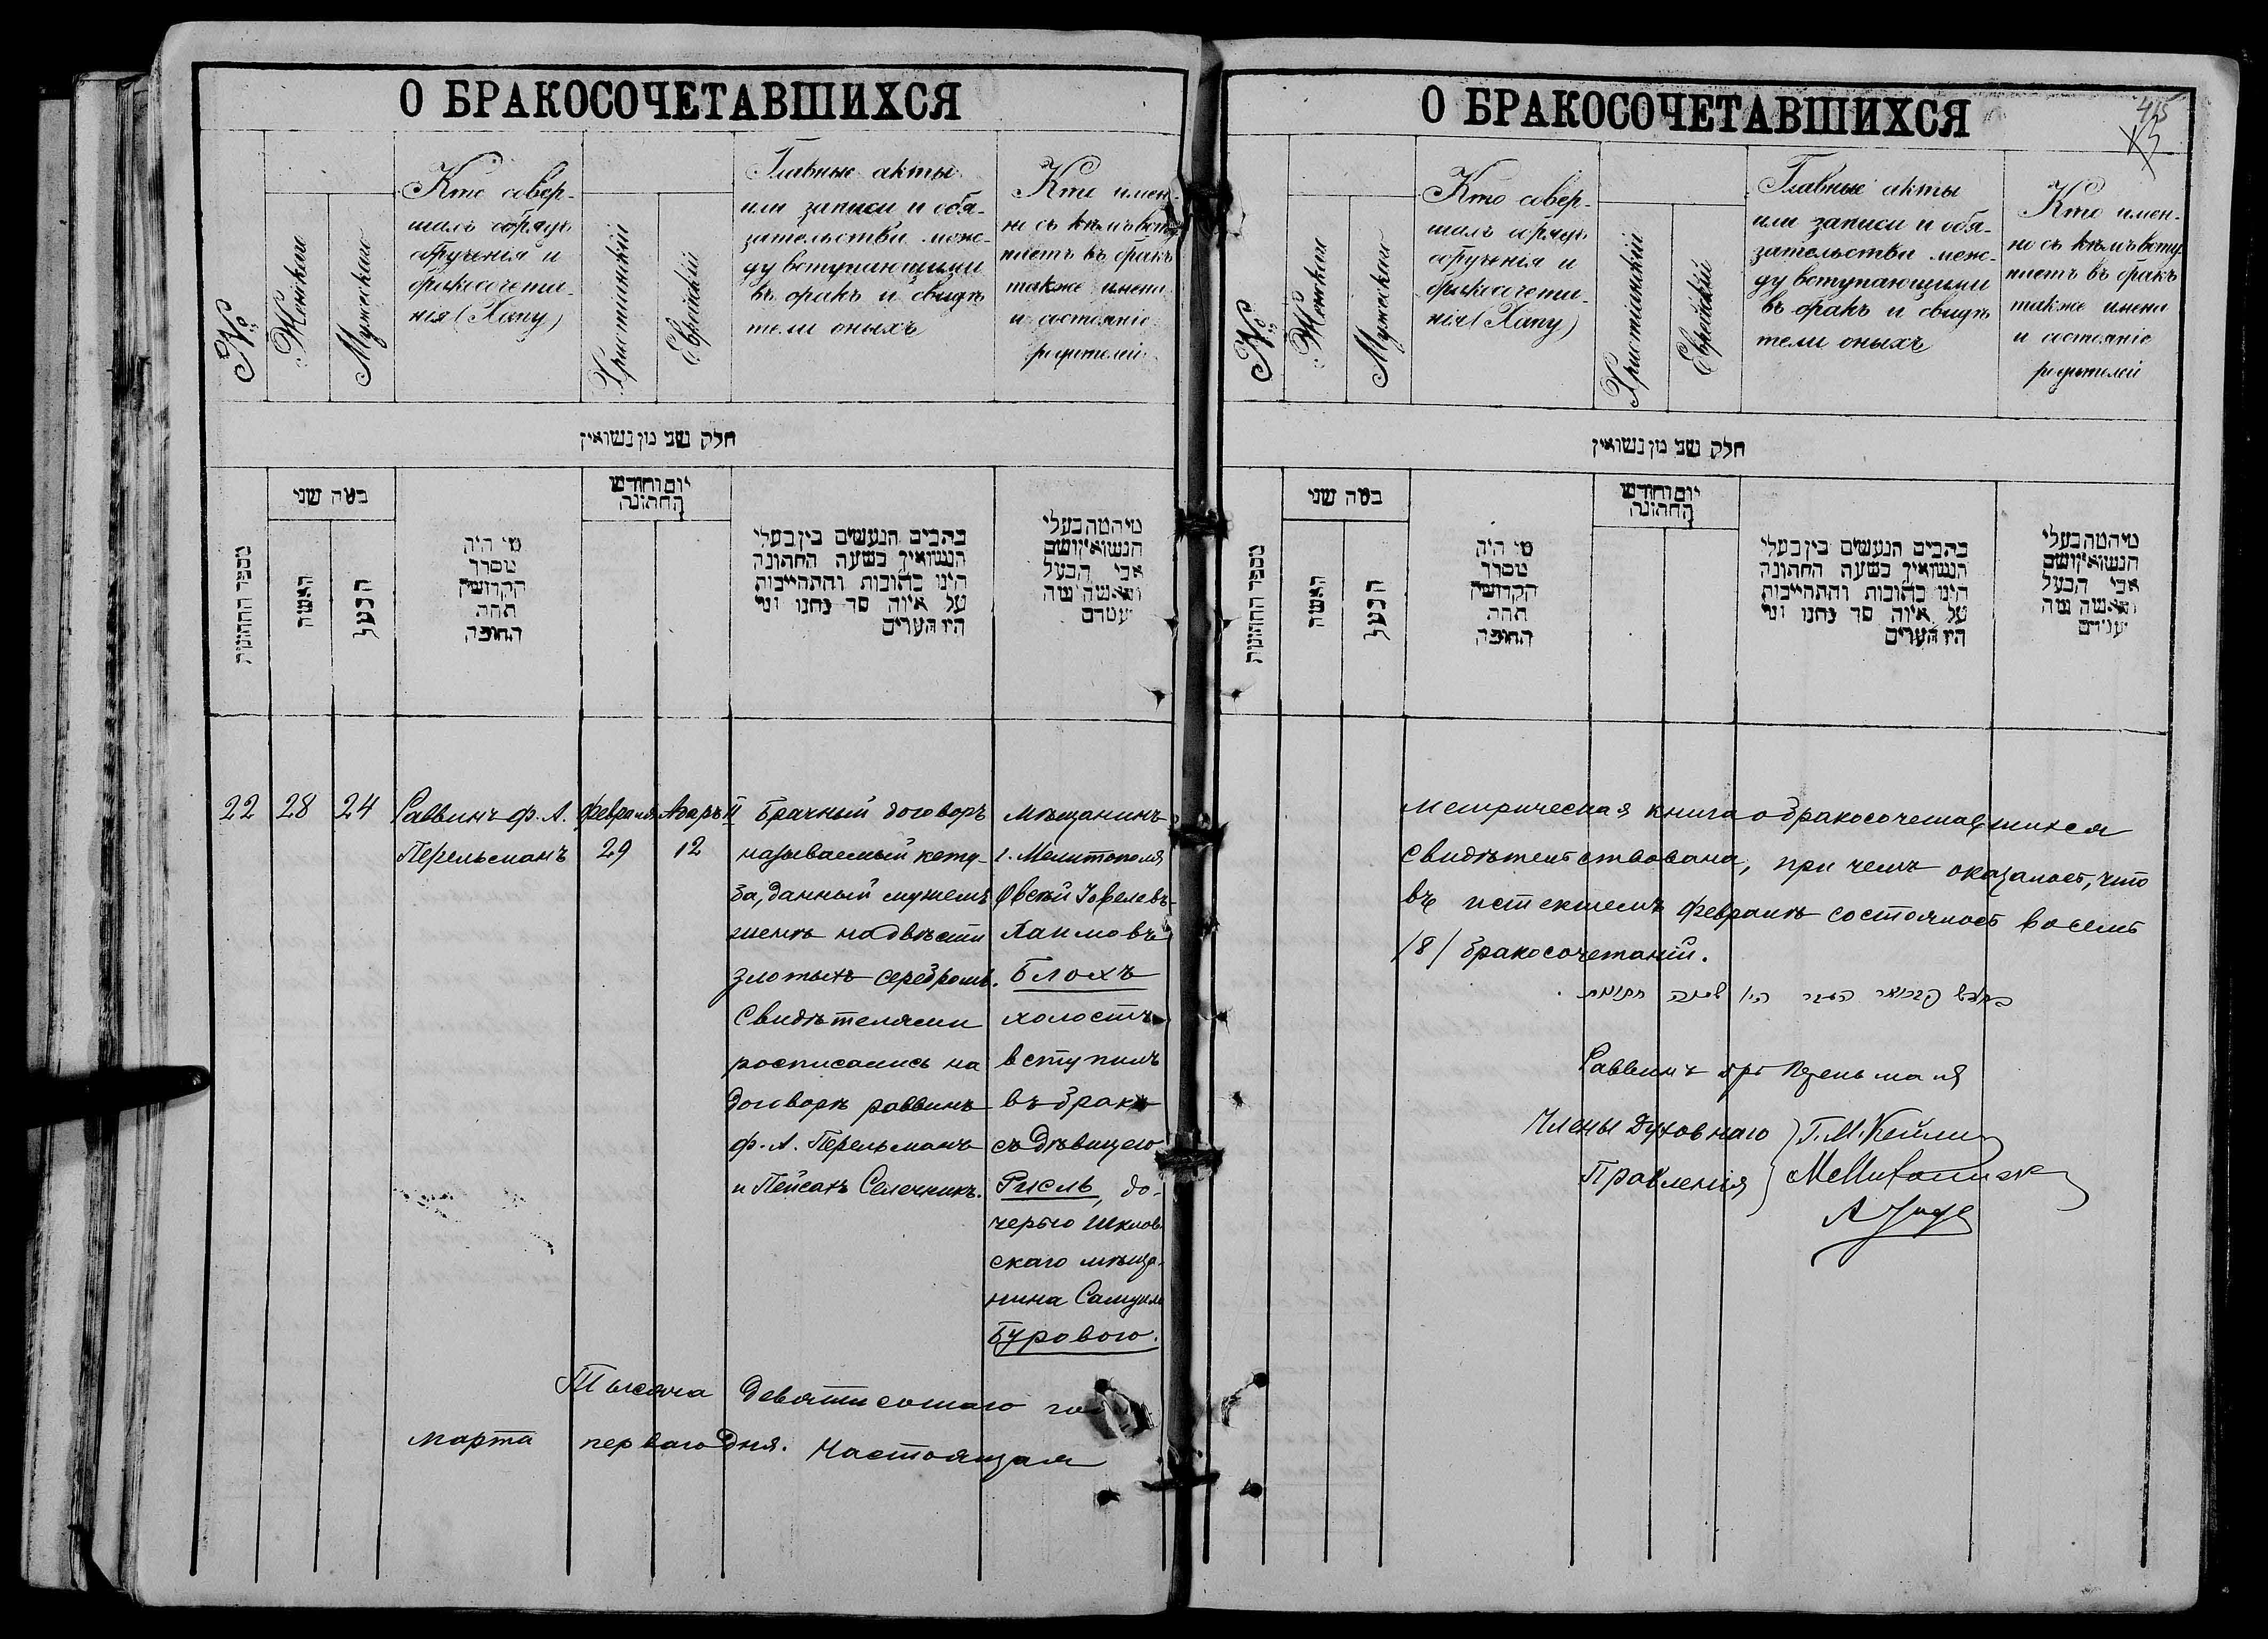 О БРАКОСОЧЕТАВШИХСЯ
№
Женскій
Мужской
Кто совер-
шалъ обрядъ
обрученія и
бракосочета-
нія (Хапу)
Христіанскій
Еврейскій
Главные акты
или записи и обя-
зательства меж-
ду вступающими
въ бракъ и свидѣ
тели оныхъ
Кто имен-
но съ кѣмъ всту
паетъ въ бракъ
также имена
и состояніе
родителей
חלק שני מן נשואין
מספר החתונות
כמה שני
האשה
הבעל
מי היה
מסדר
הקדושין
תחת
החופה
יום וחודש
החתונה
כתבים הנעשים בין בעלי
הנשואין בשעה החתונה
היינו כתובות והתחייבות
על איזה סך נתנו ומי
היו העדים
מי המה בעלי
הנשואין ושם
אבי הבעל
והאשה ומה
22
28
24
Раввинъ Ф. А.
Перельманъ
Февраля
29
Адаръ II
12
Брачный договоръ
называемый кету-
ба, данный мужемъ
женѣ на двѣсти
злотыхъ серебромъ.
Свидѣтелями
росписались на
договорѣ раввинъ
Ф. А. Перельманъ
и Пейсахъ Селечникъ.
Мѣщанинъ
г. Мелитополя
Овсѣй Іоселевъ-
Хаимовъ
Блохъ
холостъ
вступилъ
въ бракъ
съ дѣвицею
Рисль, до-
черью Шклов
скаго мѣща-
нина Самуила
Бурового.
Тысяча девятисотаго го
марта перваго дня. Настоящая
О БРАКОСОЧЕТАВШИХСЯ
45
№
Женскій
Мужской
Кто совер-
шалъ обрядъ
обрученія и
бракосочета-
нія (Хапу)
Христіанскій
Еврейскій
Главные акты
или записи и обя-
зательства меж-
ду вступающими
въ бракъ и свидѣ
тели оныхъ
Кто имен-
но съ кѣмъ всту
паетъ въ бракъ
также имена
и состояніе
родителей
חלק שני מן נשואין
מספר החתונות
כמה שני
האשה
הבעל
מי היה
מסדר
הקדושין
תחת
החופה
יום וחודש
החתונה
כתבים הנעשים בין בעלי
הנשואין בשעה החתונה
היינו כתובות והתחייבות
על איזה סך נתנו ומי
היו העדים
מי המה בעלי
הנשואין ושם
אבי הבעל
והאשה ומה
метрическая книга о бракосочетавшихся
свидѣтельствована, при чемъ оказалось, что
въ истекшемъ Февралѣ состоялось восемь
/8/ бракосочетаній.
בחדש פברואר העבר היו שמנה חתונות
Раввинъ Перельманъ
Члены Духовнаго
Правленія